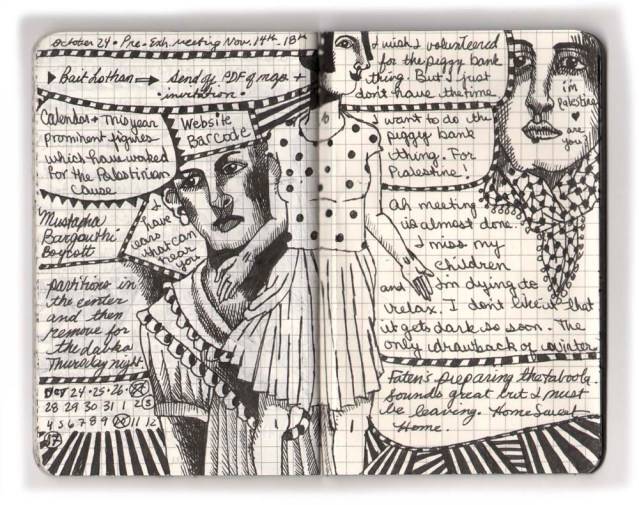 October 24 • Pre-Exh. meeting Nov. 14th - 18th
• Bait Lothan ⇒ send off PDF of map +
• invitation •
Calendar + This year
prominent figures
which have worked
for the Palestinian
Cause
Website
BarCode
Mustapha
Bargouthi
Boycott
I
have
ears
that can
hear
you
partitions in
the center
and then
remove for
the dabka
Thursday night.
Oct 24 • 25 • 26
28 29 30 31 1 2 3
4 5 6 7 8 9 11 12
I wish I volunteered
for the piggy bank
thing. But I just
don't have the time
I want to do the
piggy bank
thing. For
Palestine!
Ah meeting
is almost done.
I miss my
children
and I'm dying to
relax. I don't like it that
it gets dark so soon. The
only drawback of winter
Faten's preparing the taboola.
Sounds great but I must
be leaving. Home Sweet
Home.
i'm
Palestine
♥
are
you